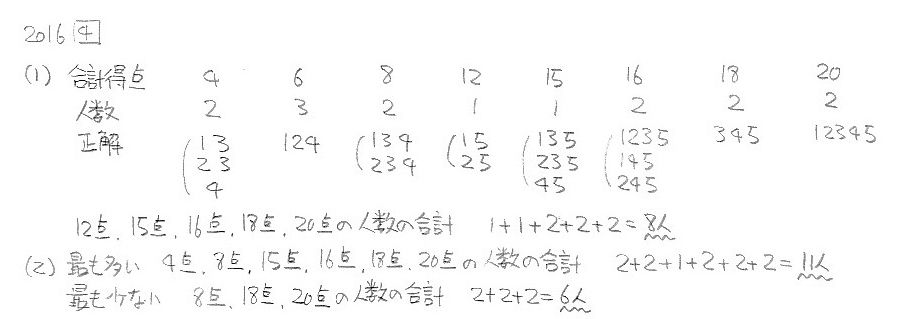 2016 4
(1) 合計得点 4 6 8 12 15 16 18 20
人数 2 3 2 1 1 2 2 2
正解 13 124 134 15 135 1235 345 12345
23 234 25 235 145
4 45 245
12点、15点、16点、18点、20点の人数の合計 1+1+2+2+2=8人
(2) 最も多い 4点、8点、15点、16点、18点、20点の人数の合計 2+2+1+2+2+2=11人
最も少ない 8点、18点、20点の人数の合計 2+2+2=6人